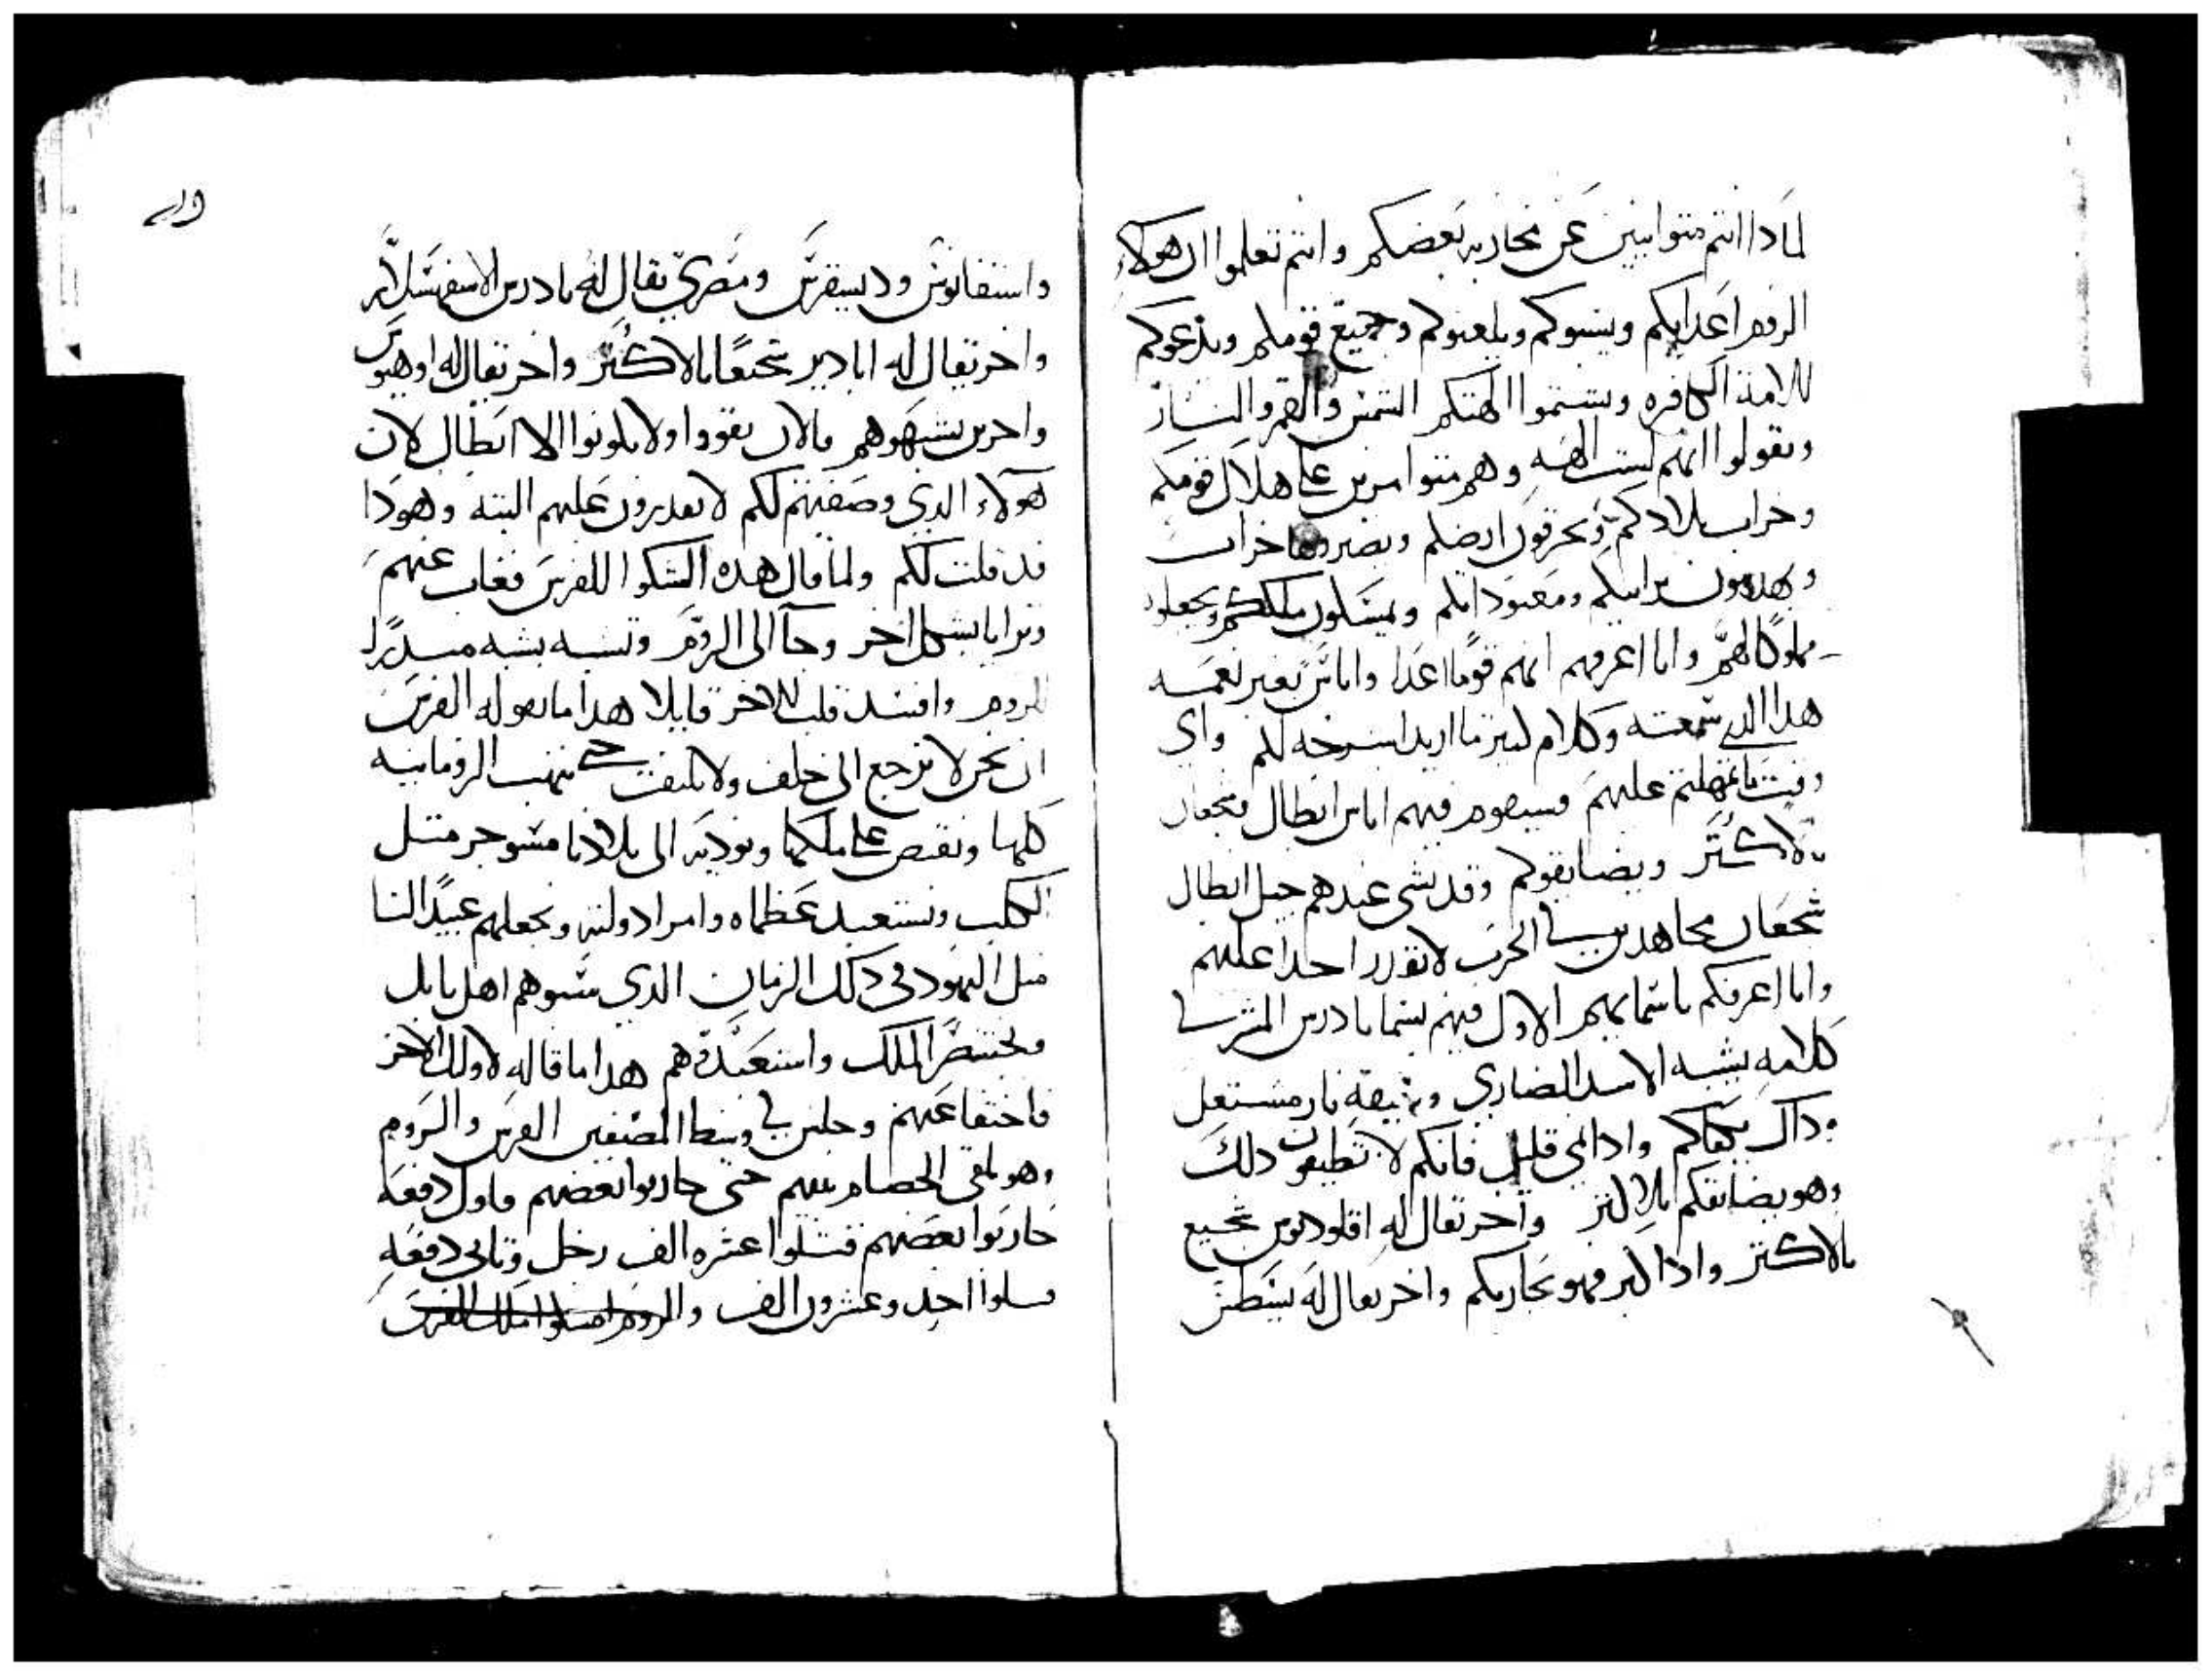 لمادا انتم متوانيين عن محاربه بعضكم وانتم تعلموا ان هولاء
الروم اعدايكم ويسبوكم ويلعنوكم وجميع قومكم ويدعوكم
للامة الكافره ويشتموا الهتكم الشمس والقمر والنار
ويقولوا انهم ليست الهه وهم متوامرين على هلاك قومكم
وخراب بلادكم ويحرقون ارضكم ويصيروها خراب
ويهدمون برابيكم ومعبوداتكم ويمسكون ملككم ويجعلوه
مملوكا لهم وانا اعرفهم انهم قوما اعدا وانا بغير نعمه
هدا الدي سمعته وكلام كتير ما اريد اشرحه لكم واي
وقت تمهلتم عليهم فسيقوم فيهم اناس ابطال شجعان
بالاكتر ويضايقوكم وقد نشى عندهم جيل ابطال
شجعان مجاهدين في الحرب لا تقدر احدا عليهم
وانا اعرفكم باسمايهم الاول فيهم يسما تادرس المشرقي
كلامه يشبه الاسد الضاري ونار مشتعل
وداك واداالمي قليل فانكم لا تطيقون دلك
وهو يضايقكم بالاكتر واخر يقال له اقلوديوس شجيع
بالاكتر واذا كبر فهو يحاربكم واخر يقال له
واستفانوس ومصري يقال له تادرس الاسفهسلار
واخر يقال له ابادير شجعا بالاكتر واخر يقال له
واخرين يشبهوهم والان تقووا ولا تكونوا الا ابطال لان
هولاء الدي وصفتهم لكم لا تقدرون عليهم البته وهودا
قد قلت لكم ولما قال هده الشكوا للفرس فغاب عنهم
وترايا بشكل اخر وجا الى الروم وتشبه بشبه مدبرا
للروم وافسد قلب الاخر قايلا هدا ما تقوله الفرس
ان نحن لا نرجع الى خلف ولا نلتفت حتى ننهب الرومانيه
كلها ونقبض على ملكها ونوديه الى بلادنا مثل
الكلب ونستعبد عظماه وامرا دولته ونجعلهم عبيدا لنا
مثل اليهود في دلك الزمان الدي سبوهم اهل بابل
وبختنصر الملك واستعبدوهم هدا ما قاله لاولئك الاخر
فاختفا عنهم وجلس في وسط الصفين الفرس والروم
وهو يلقى الخصام بينهم حتى حاربوا بعضهم فاول دفعه
حاربوا بعضهم قتلوا عشره الف رجل وتاني دفعه
قتلوا احد وعشرون الف